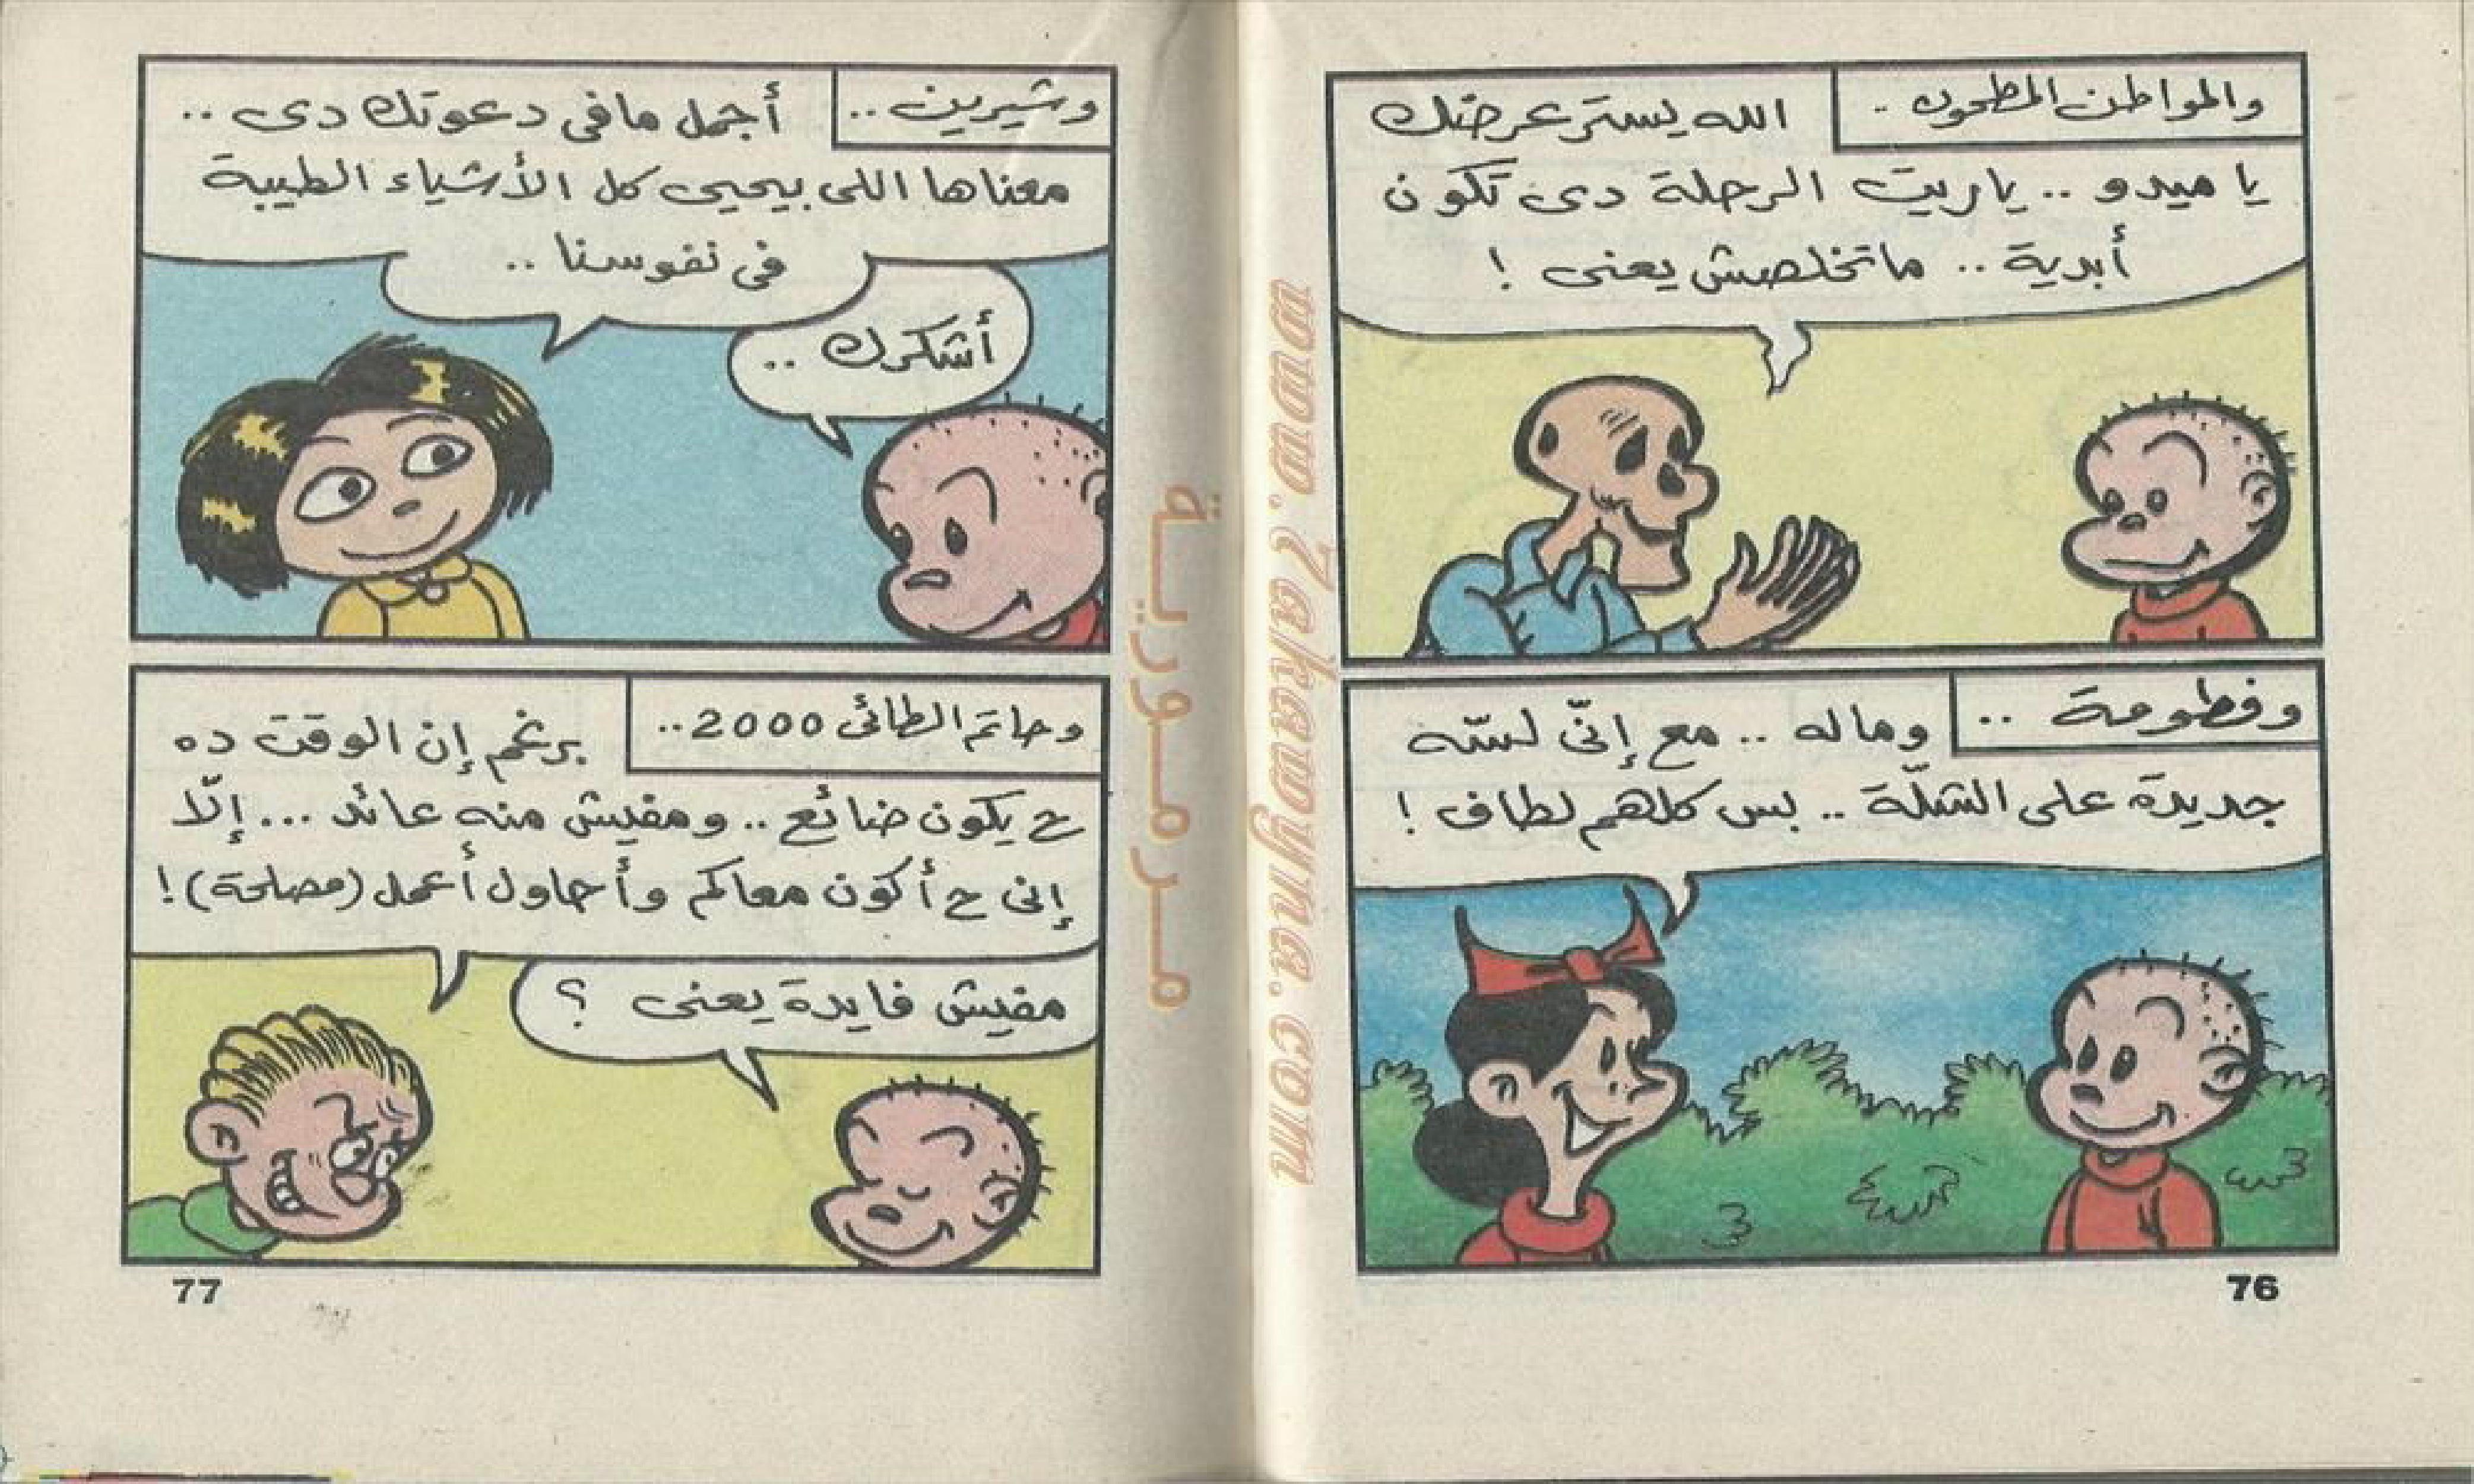 والمواطن المطحون ..
الله يستر عرضك
يا ميدو .. ياريت الرحلة دى تكون
أبدية .. ماتخلصش يعنى !
وفطومة ..
وماله .. مع إنّى لسّه
جديدة على الشلّة .. بس كلهم لطاف !
76
وشيرين ..
أجمل مافى دعوتك دى ..
معناها اللى بيحيى كل الأشياء الطيبة
فى نفوسنا ..
أشكرك ..
وحاتم الطائى 2000 ..
برغم إن الوقت ده
ح يكون ضائع .. ومفيش منه عائد ... إلّا
إنى ح أكون معاكم وأحاول أعمل (مصلحة) !
مفيش فايدة يعنى ؟
77
مرمورية
www.7akawyna.com